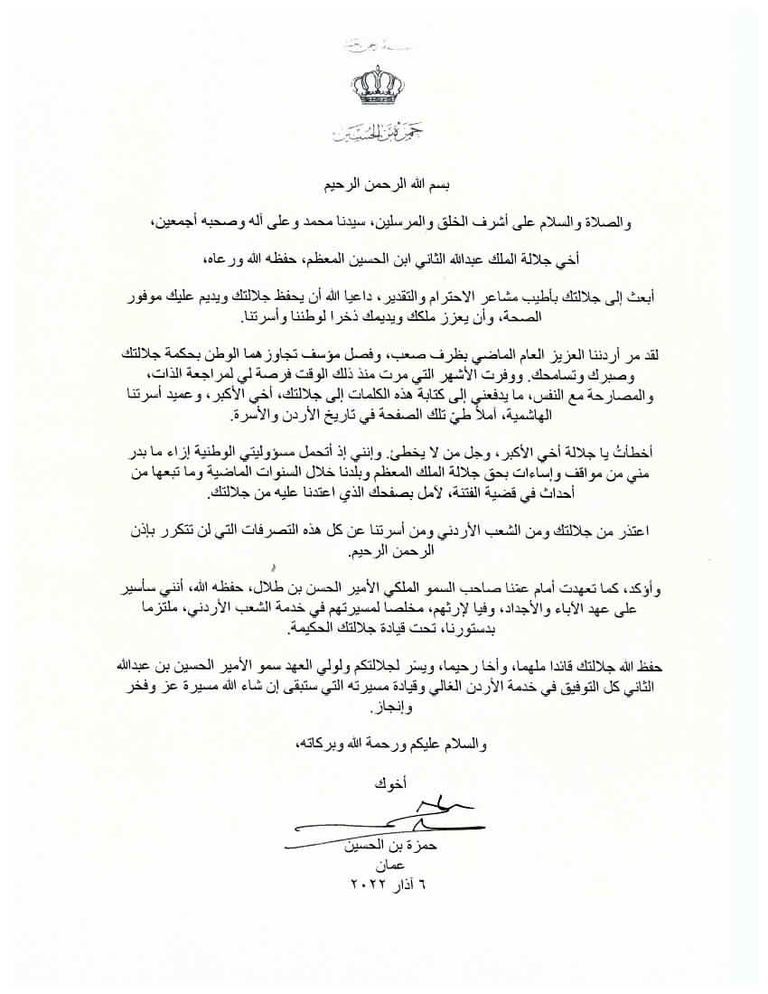 حمزة بن الحسين
بسم الله الرحمن الرحيم
والصلاة والسلام على أشرف الخلق والمرسلين، سيدنا محمد وعلى آله وصحبه أجمعين،
أخي جلالة الملك عبدالله الثاني ابن الحسين المعظم، حفظه الله ورعاه،
أبعث إلى جلالتك بأطيب مشاعر الاحترام والتقدير، داعيا الله أن يحفظ جلالتك ويديم عليك موفور
الصحة، وأن يعزز ملكك ويديمك ذخرا لوطننا وأسرتنا.
لقد مر أردننا العزيز العام الماضي بظرف صعب، وفصل مؤسف تجاوزهما الوطن بحكمة جلالتك
وصبرك وتسامحك. ووفرت الأشهر التي مرت منذ ذلك الوقت فرصة لي لمراجعة الذات،
والمصارحة مع النفس، ما يدفعني إلى كتابة هذه الكلمات إلى جلالتك، أخي الأكبر، وعميد أسرتنا
الهاشمية، أملاً طيّ تلك الصفحة في تاريخ الأردن والأسرة.
أخطأتُ يا جلالة أخي الأكبر، وجل من لا يخطئ. وإنني إذ أتحمل مسؤوليتي الوطنية إزاء ما بدر
مني من مواقف وإساءات بحق جلالة الملك المعظم وبلدنا خلال السنوات الماضية وما تبعها من
أحداث في قضية الفتنة، لآمل بصفحك الذي اعتدنا عليه من جلالتك.
اعتذر من جلالتك ومن الشعب الأردني ومن أسرتنا عن كل هذه التصرفات التي لن تتكرر بإذن
الرحمن الرحيم.
وأؤكد، كما تعهدت أمام عمّنا صاحب السمو الملكي الأمير الحسن بن طلال، حفظه الله، أنني سأسير
على عهد الآباء والأجداد، وفيا لإرثهم، مخلصا لمسيرتهم في خدمة الشعب الأردني، ملتزما
بدستورنا، تحت قيادة جلالتك الحكيمة.
حفظ الله جلالتك قائدا ملهما، وأخا رحيما، ويسّر لجلالتكم ولولي العهد سمو الأمير الحسين بن عبدالله
الثاني كل التوفيق في خدمة الأردن الغالي وقيادة مسيرته التي ستبقى إن شاء الله مسيرة عز وفخر
وإنجاز.
والسلام عليكم ورحمة الله وبركاته،
أخوك
حمزة بن الحسين
عمان
٦ آذار ٢٠٢٢